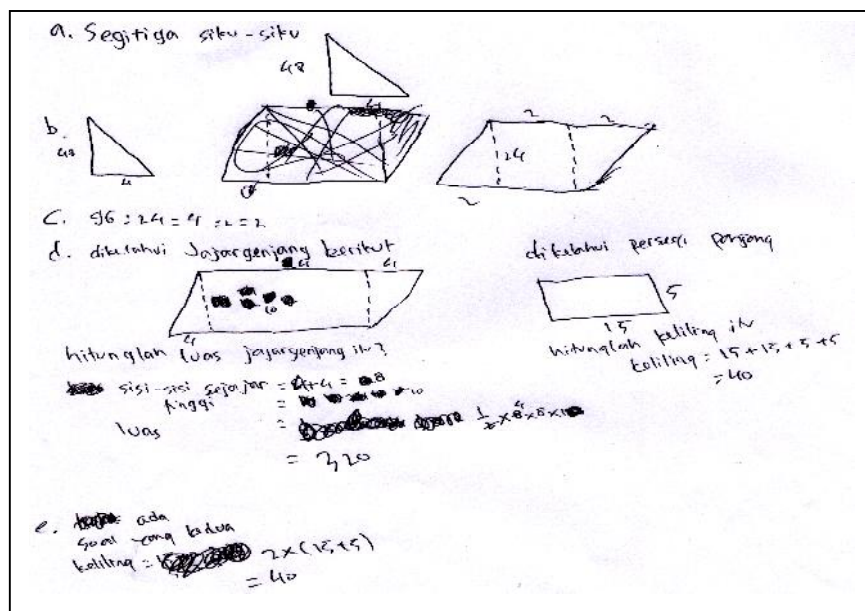 a. Segitiga siku-siku
48
4
b.
48
4
2 2
24
2
c. 96 : 24 = 4 : 2 = 2
d. diketahui Jajargenjang berikut
4 4
10
4
hitunglah luas jajargenjang itu?
sisi-sisi sejajar = 4+4 = 8
tinggi = 10
luas =
= 320
diketahui persegi panjang
5
15
hitunglah keliling itu
keliling = 15 + 15 + 5 + 5
= 40
e. ada
soal yang kedua
keliling = 2 × (15+5)
= 40